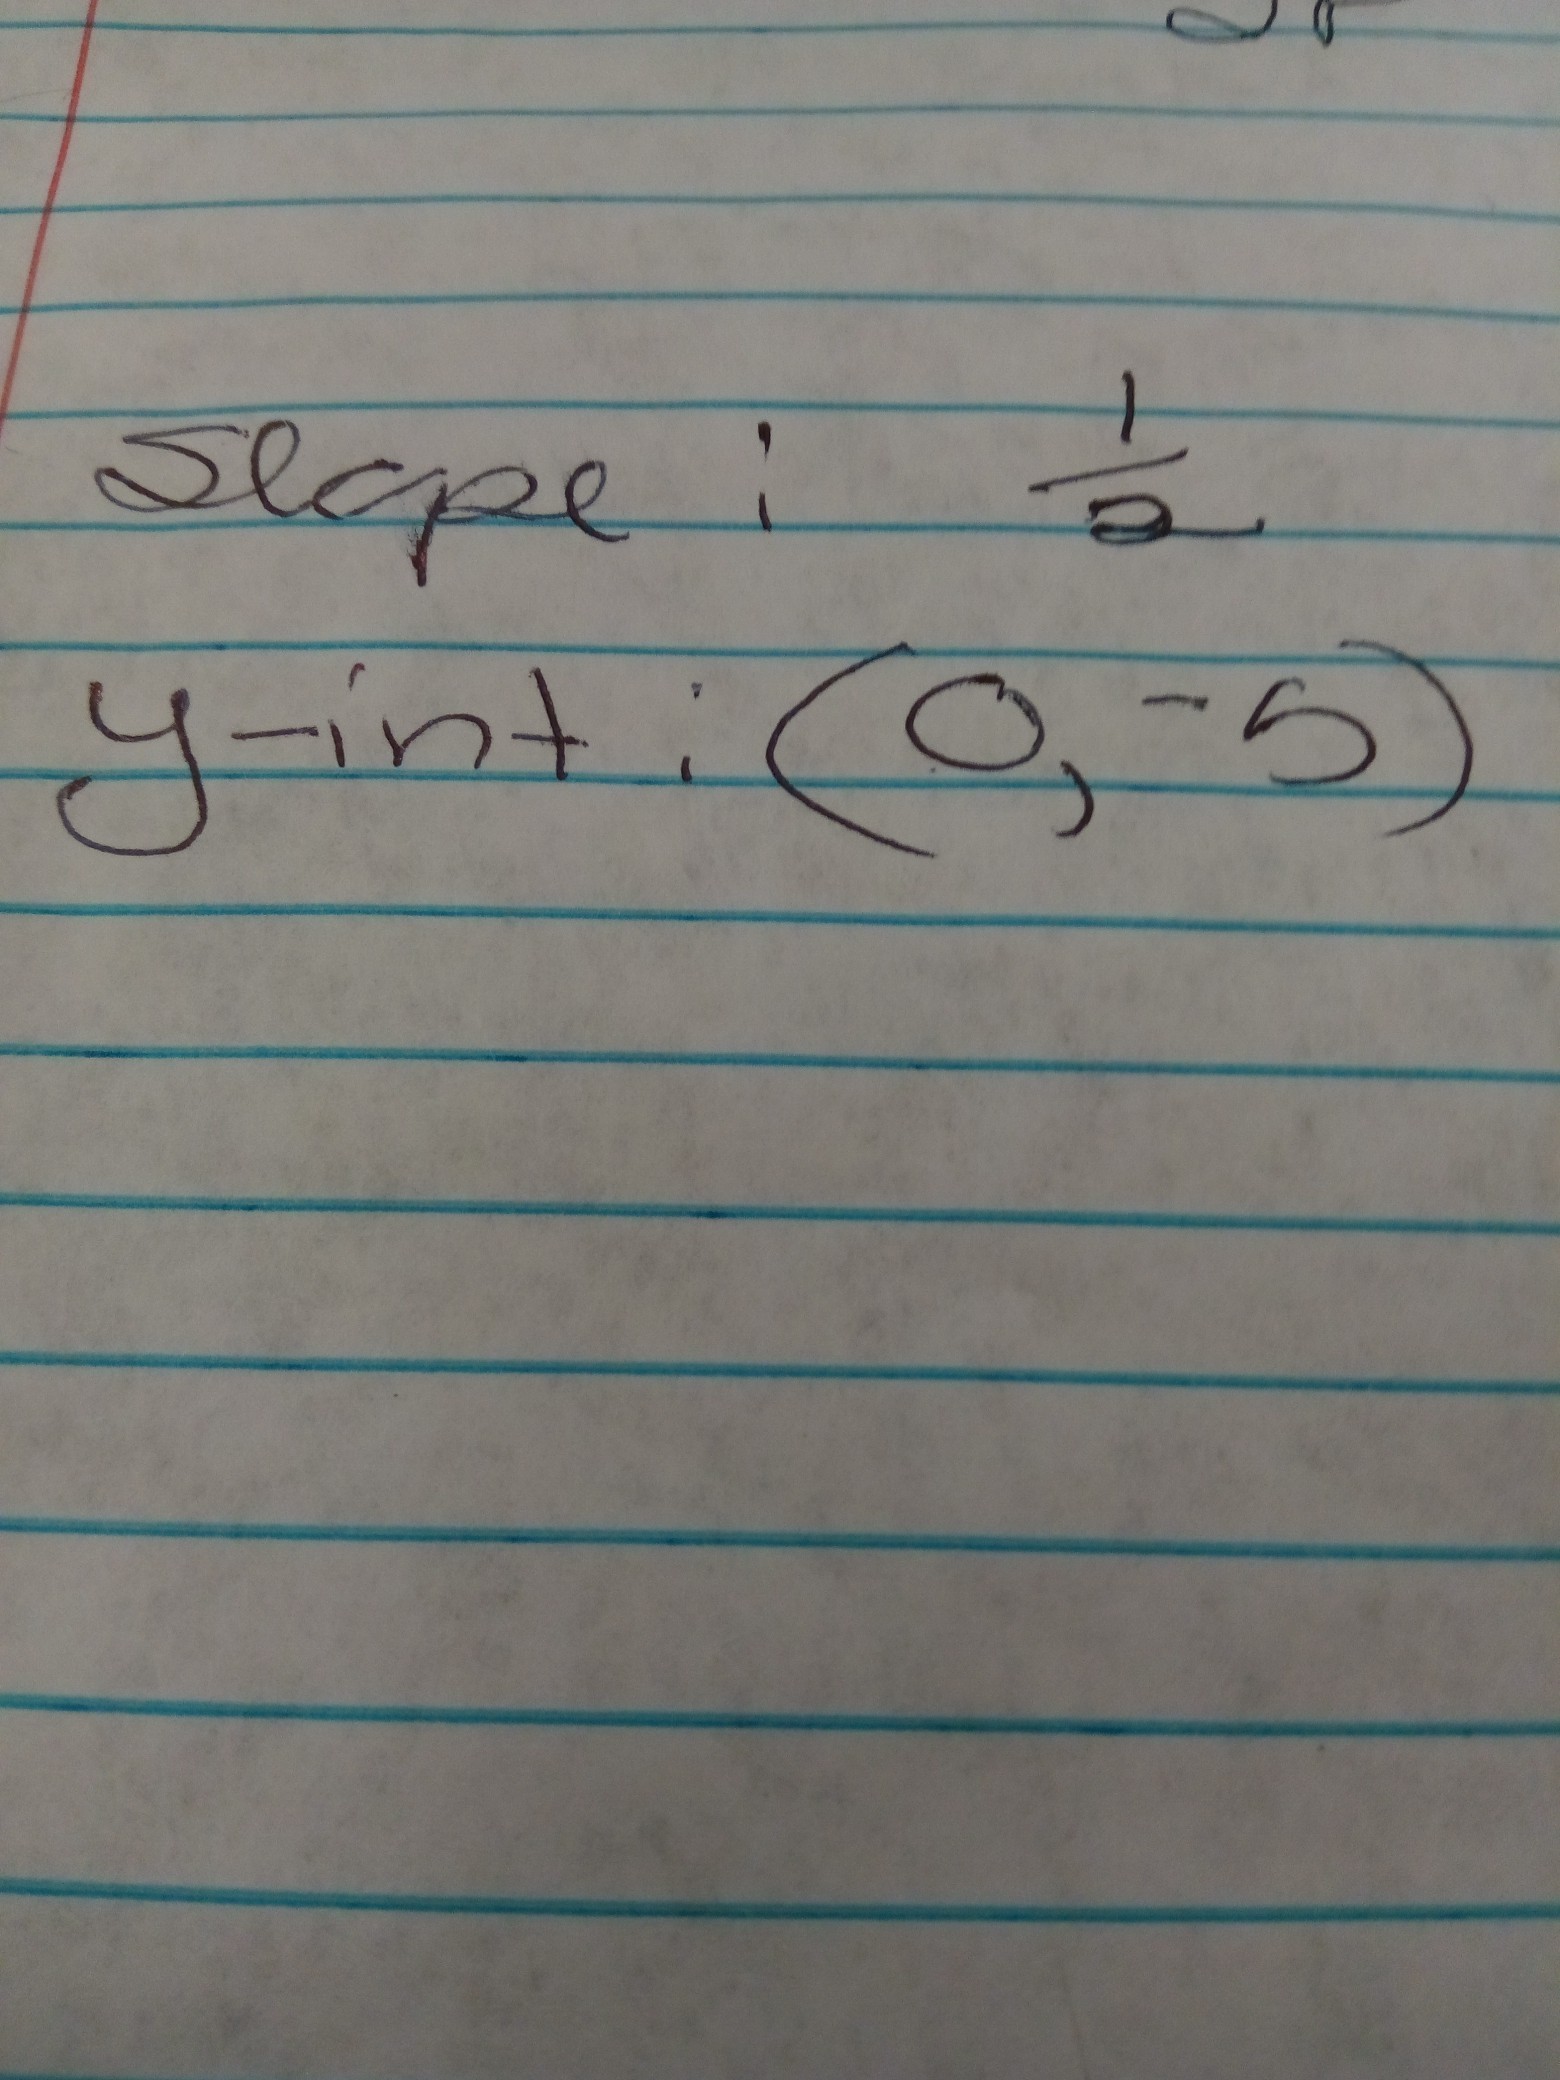 Slope : 1/2
y-int : (0, -5)